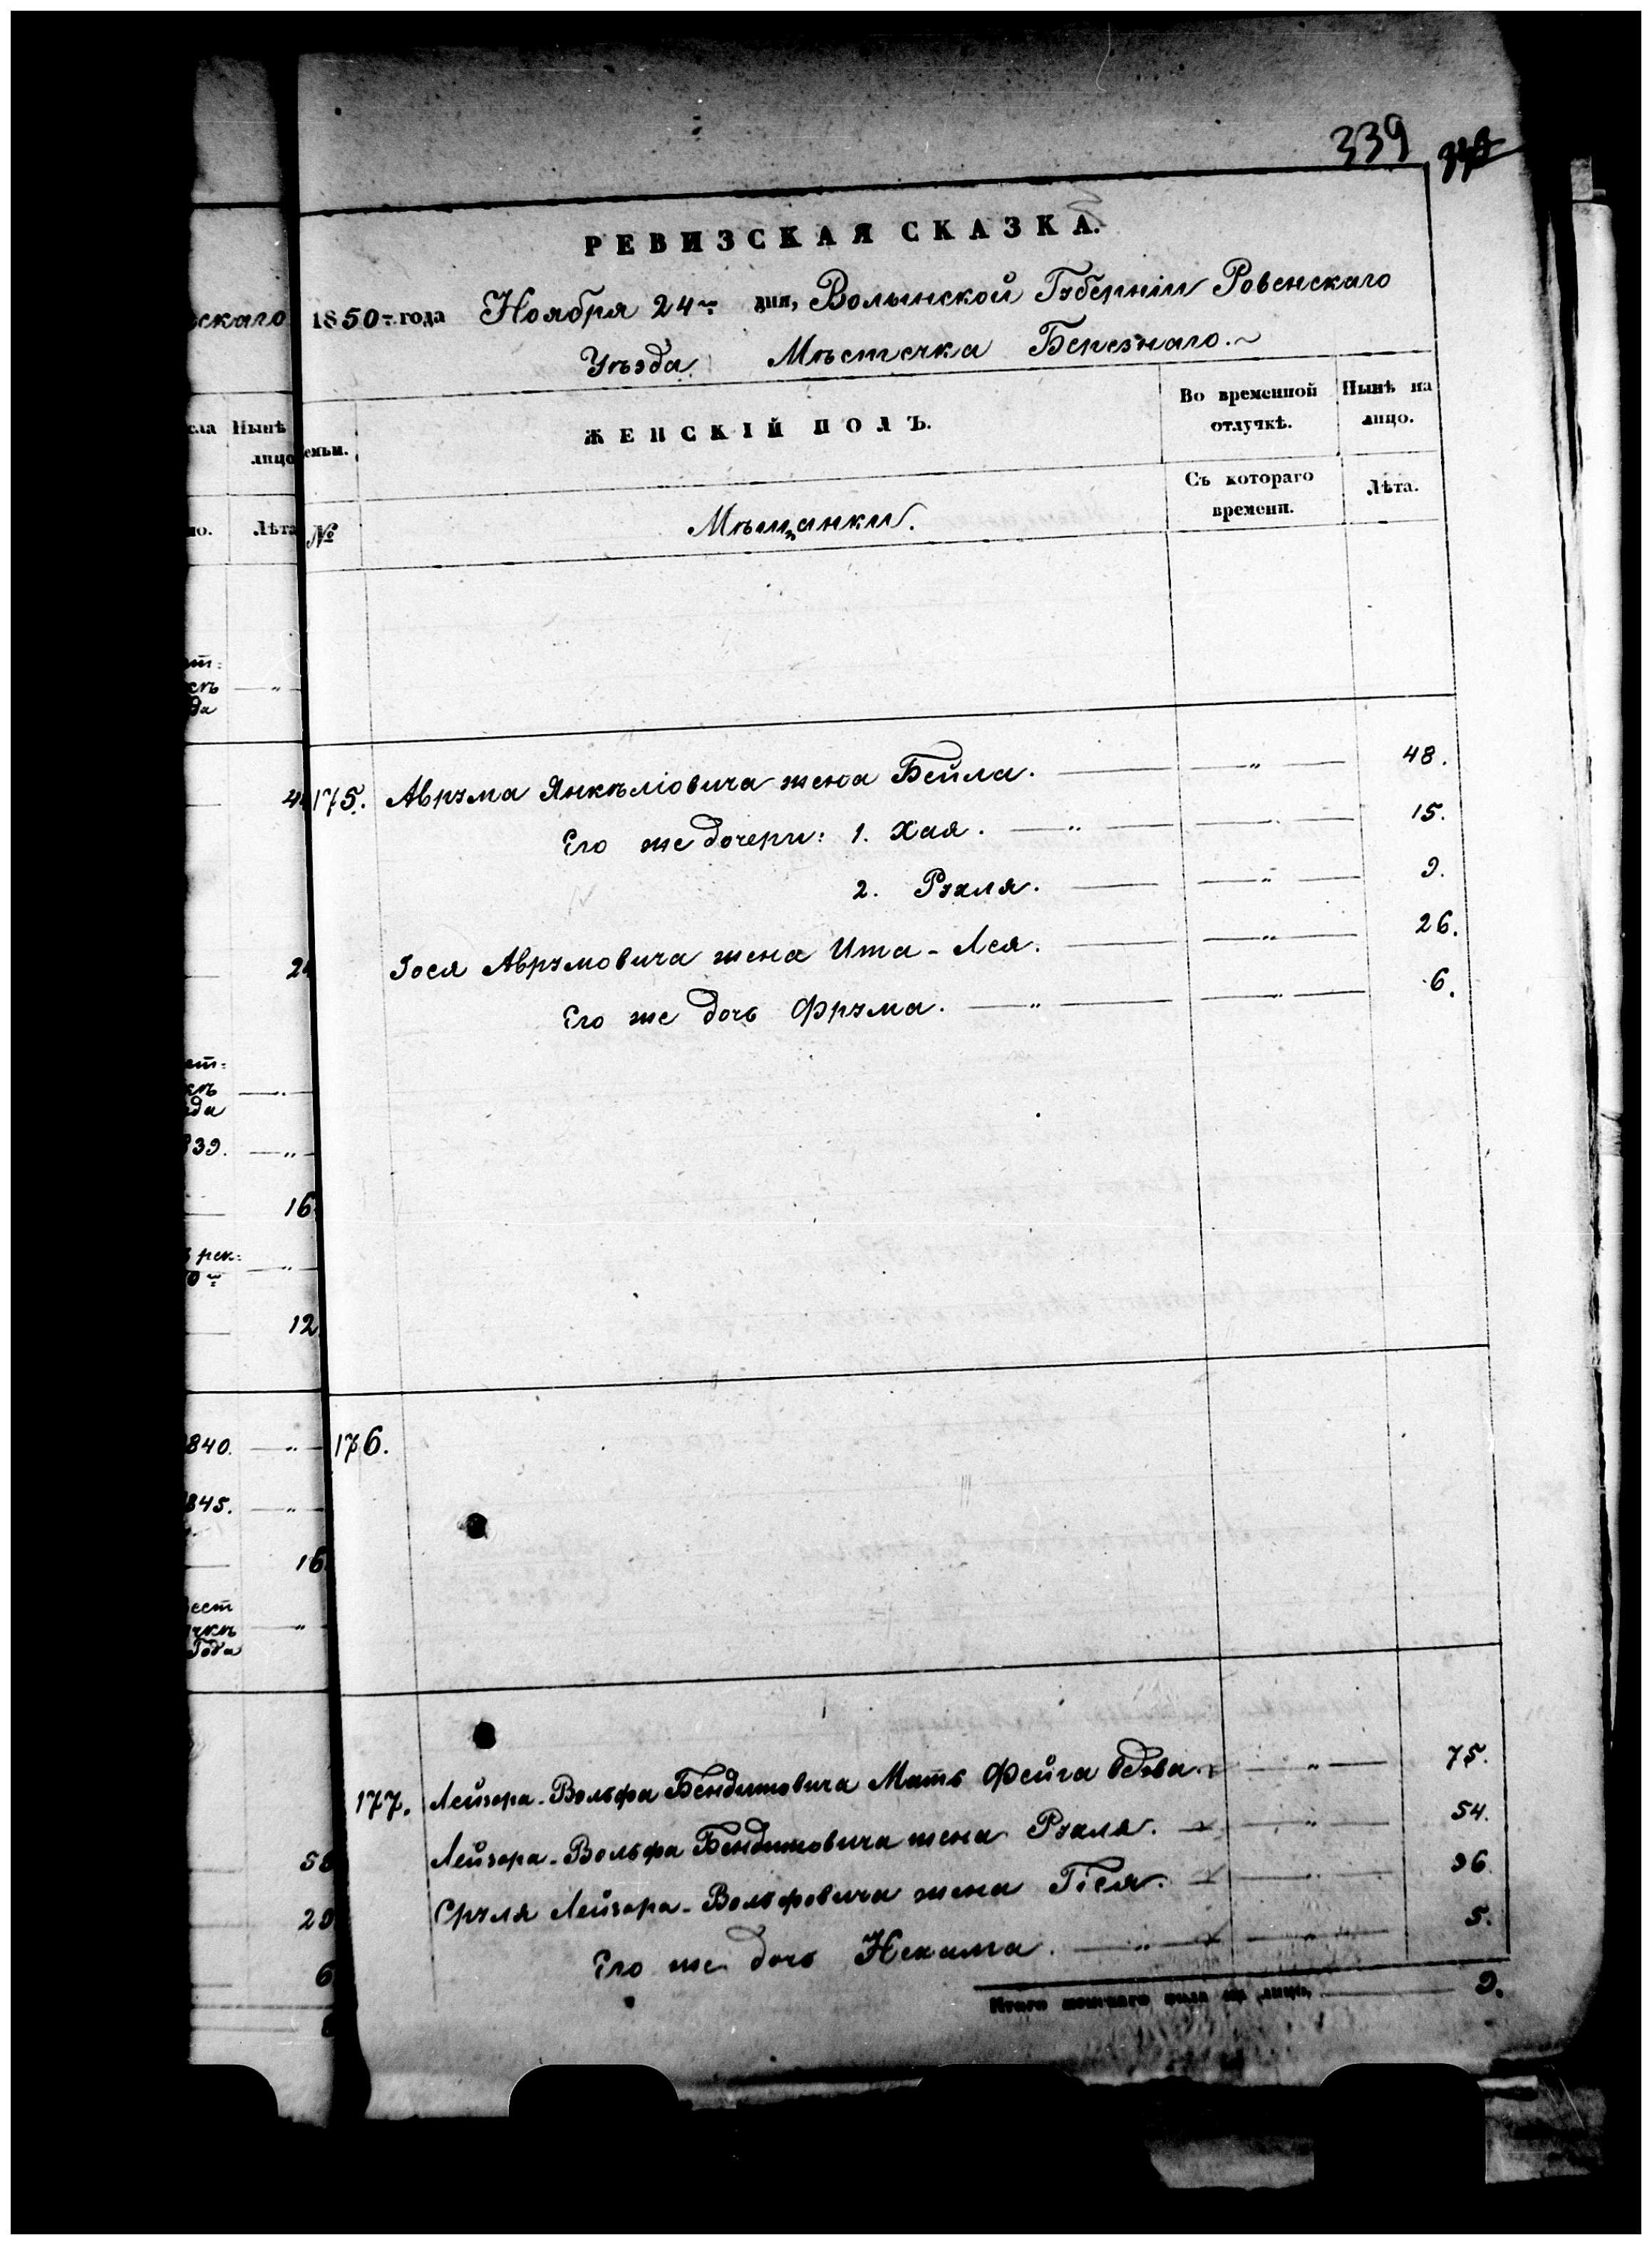 339
РЕВИЗСКАЯ СКАЗКА.
скаго
1850 года Ноября 24 дня, Волынской Губерніи Ровенскаго
Уѣзда Мѣстечка Березнаго.
Нынѣ
лицо
Лѣта
емьи.
ЖЕНСКІЙ ПОЛЪ.
Во временной отлучкѣ.
Нынѣ на лицо.
№
Мѣщанки.
Съ котораго времени.
Лѣта.
175. Аврума Янкеліовича жена Бейла. — „ — 48.
Его же дочери: 1. Хая. — „ — „ — 15.
2. Рухля. — „ — 9.
Іося Аврумовича жена Ита-Лея. — „ — 26.
Его же дочь Фрума. — „ — „ — 6.
839. — „
16
12
840. — „
176.
845. — „
16
Года
177. Лейзора-Вольфа Бендитовича Мать Фейга вдова. — „ — 75.
Лейзора-Вольфа Бендитовича жена Рухля. — „ — 54.
Сруля Лейзора-Вольфовича жена Гися. — „ — 36
Его же дочь Нехама. — „ — „ — 5.
Итого женскаго пола на лицо, 9.